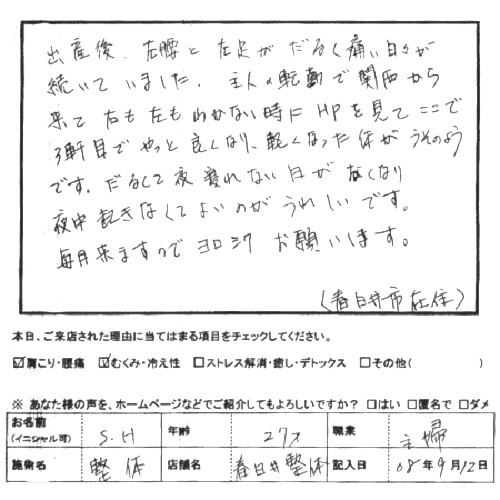 出産後、左腰と左足がだるく痛い日々が
続いていました。主人の転勤で関西から
来て右も左もわからない時にHPを見てここで
3軒目でやっと良くなり、軽くなった体がうそのよう
です。だるくて夜寝れない日がなくなり
夜中起きなくてよいのがうれしいです。
毎月来ますのでヨロシクお願いします。
(春日井市在住)
本日、ご来店された理由に当てはまる項目をチェックしてください。
☑肩こり・腰痛 ☑むくみ・冷え性 □ストレス解消・癒し・デトックス □その他( )
※ あなた様の声を、ホームページなどでご紹介してもよろしいですか? □はい □匿名で □ダメ
お名前(イニシャル可) S.H 年齢 27才 職業 主婦
施術名 整体 店舗名 春日井整体 記入日 08年9月12日